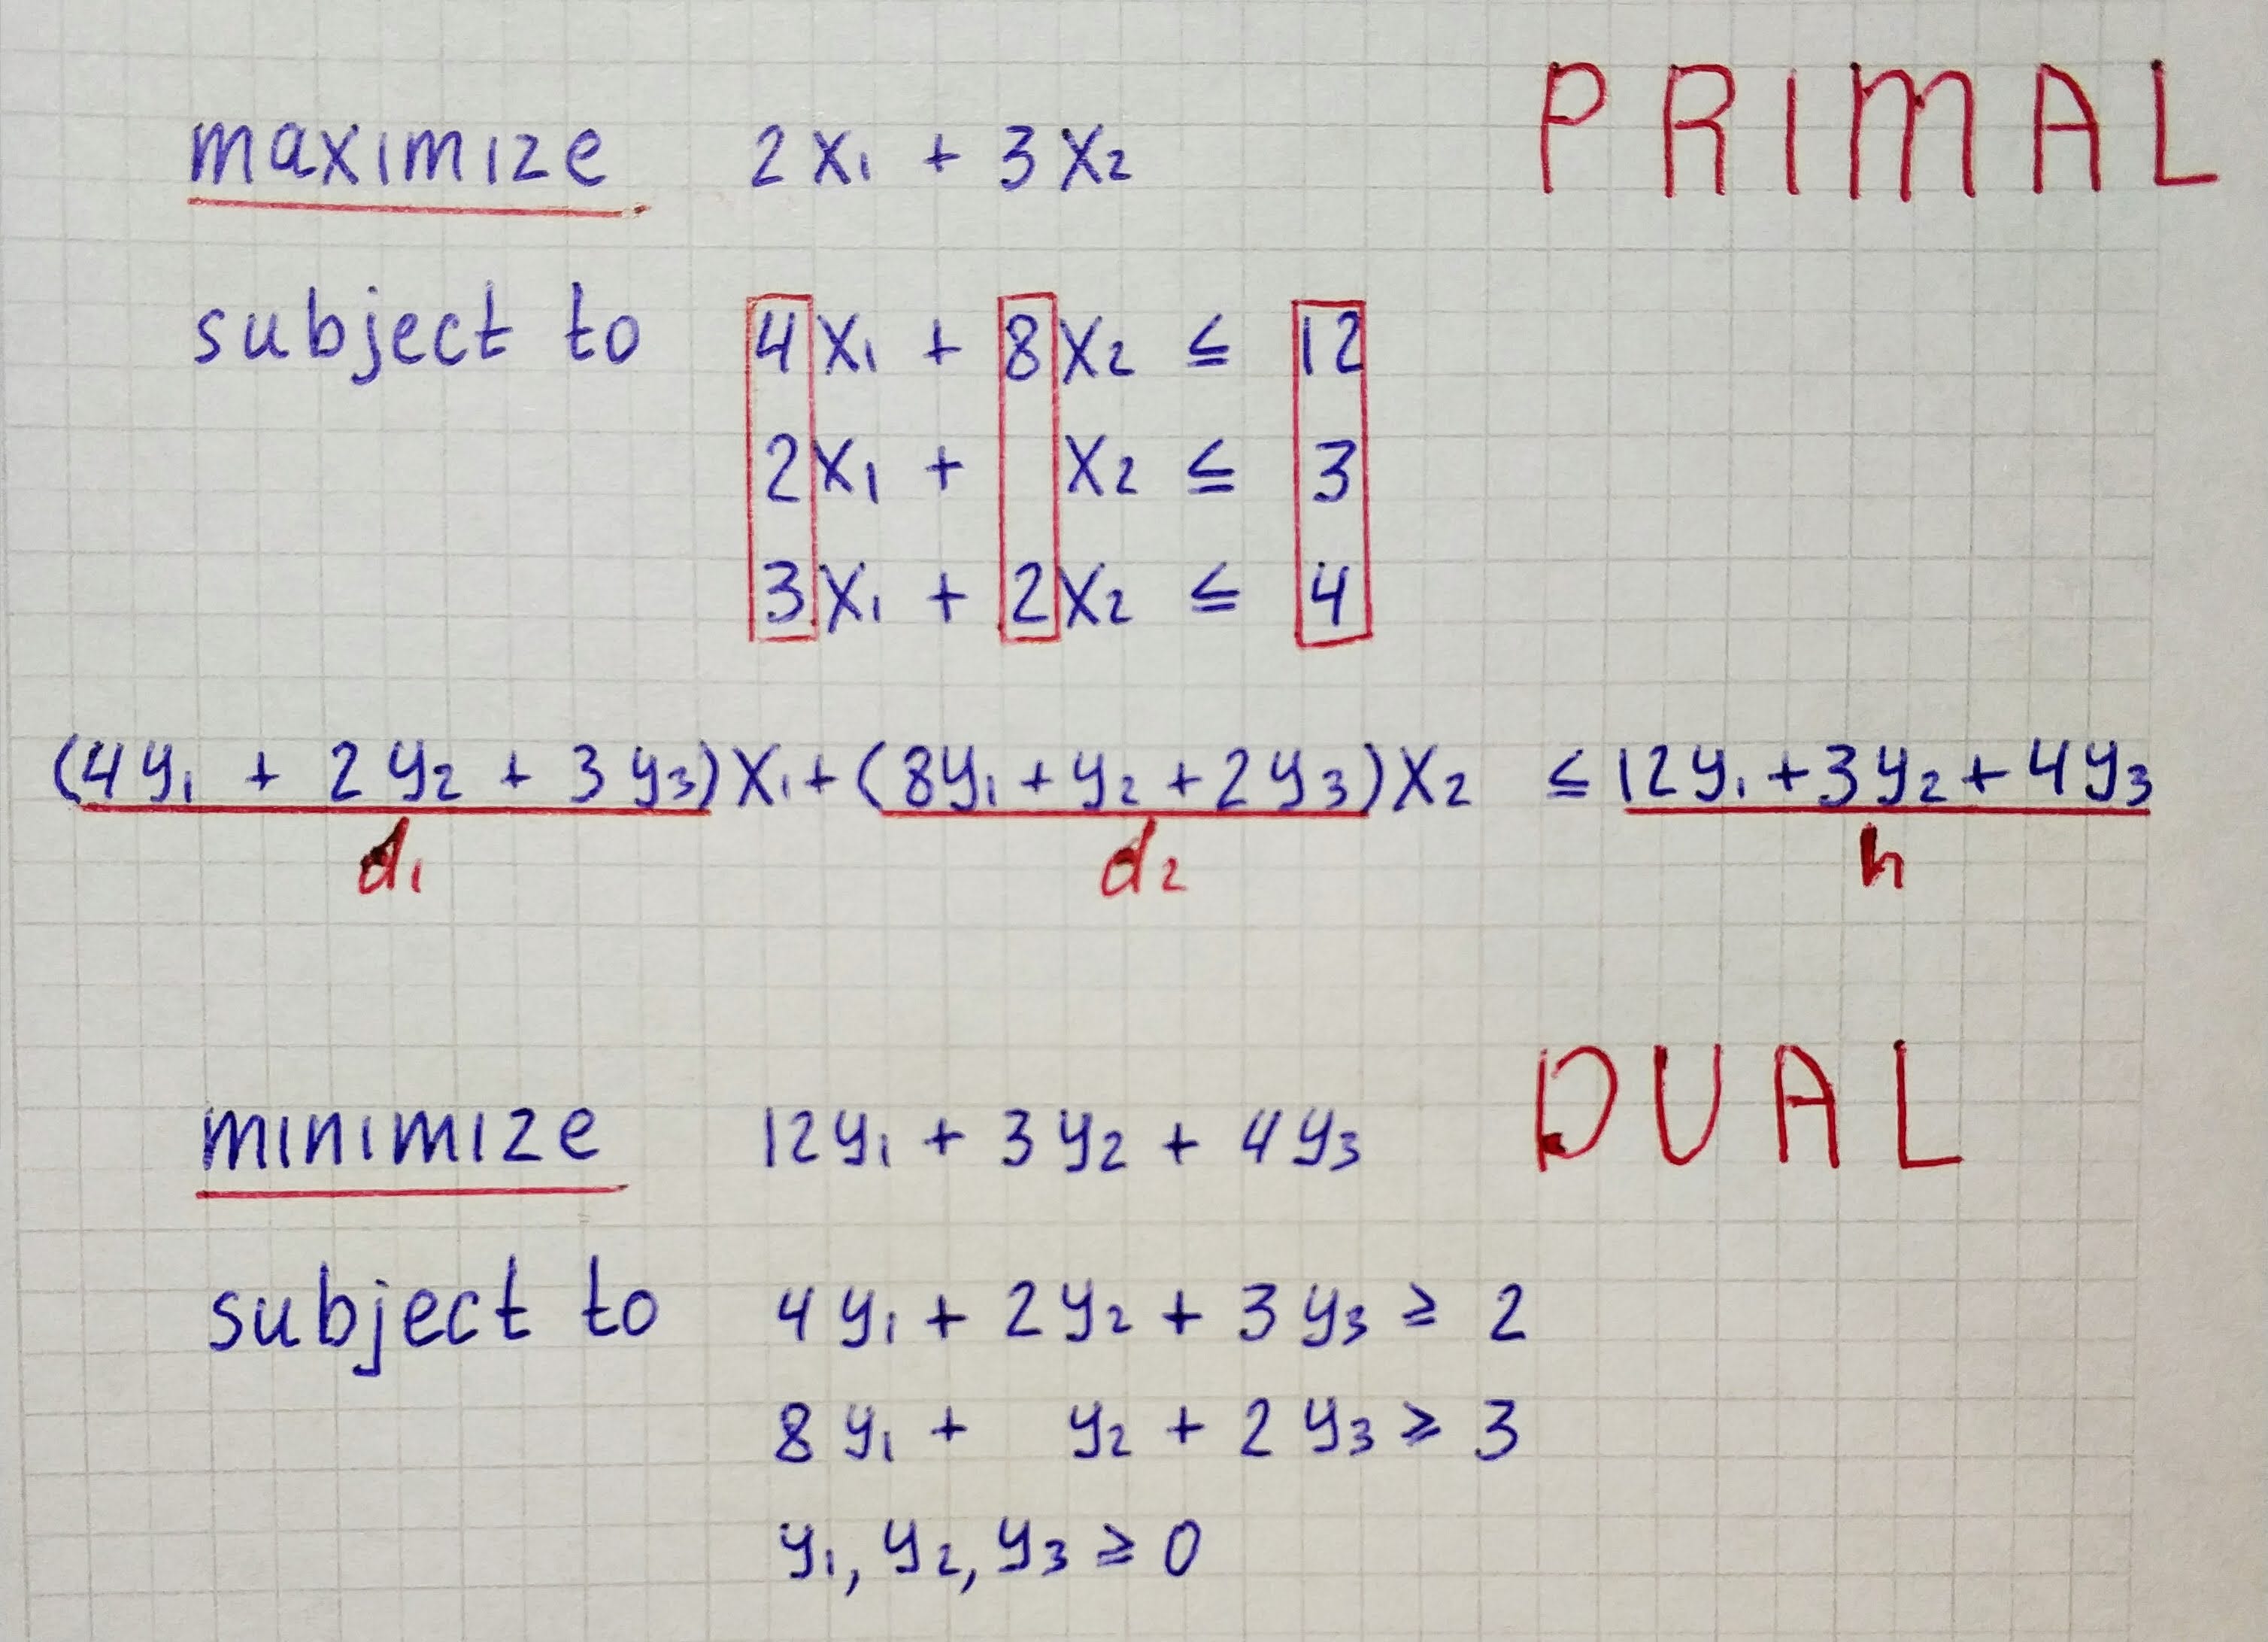 PRIMAL
maximize 2x₁ + 3x₂
subject to 4x₁ + 8x₂ ≤ 12
2x₁ + x₂ ≤ 3
3x₁ + 2x₂ ≤ 4
(4y₁ + 2y₂ + 3y₃)x₁ + (8y₁ + y₂ + 2y₃)x₂ ≤ 12y₁ + 3y₂ + 4y₃
d₁ d₂ h
DUAL
minimize 12y₁ + 3y₂ + 4y₃
subject to 4y₁ + 2y₂ + 3y₃ ≥ 2
8y₁ + y₂ + 2y₃ ≥ 3
y₁, y₂, y₃ ≥ 0